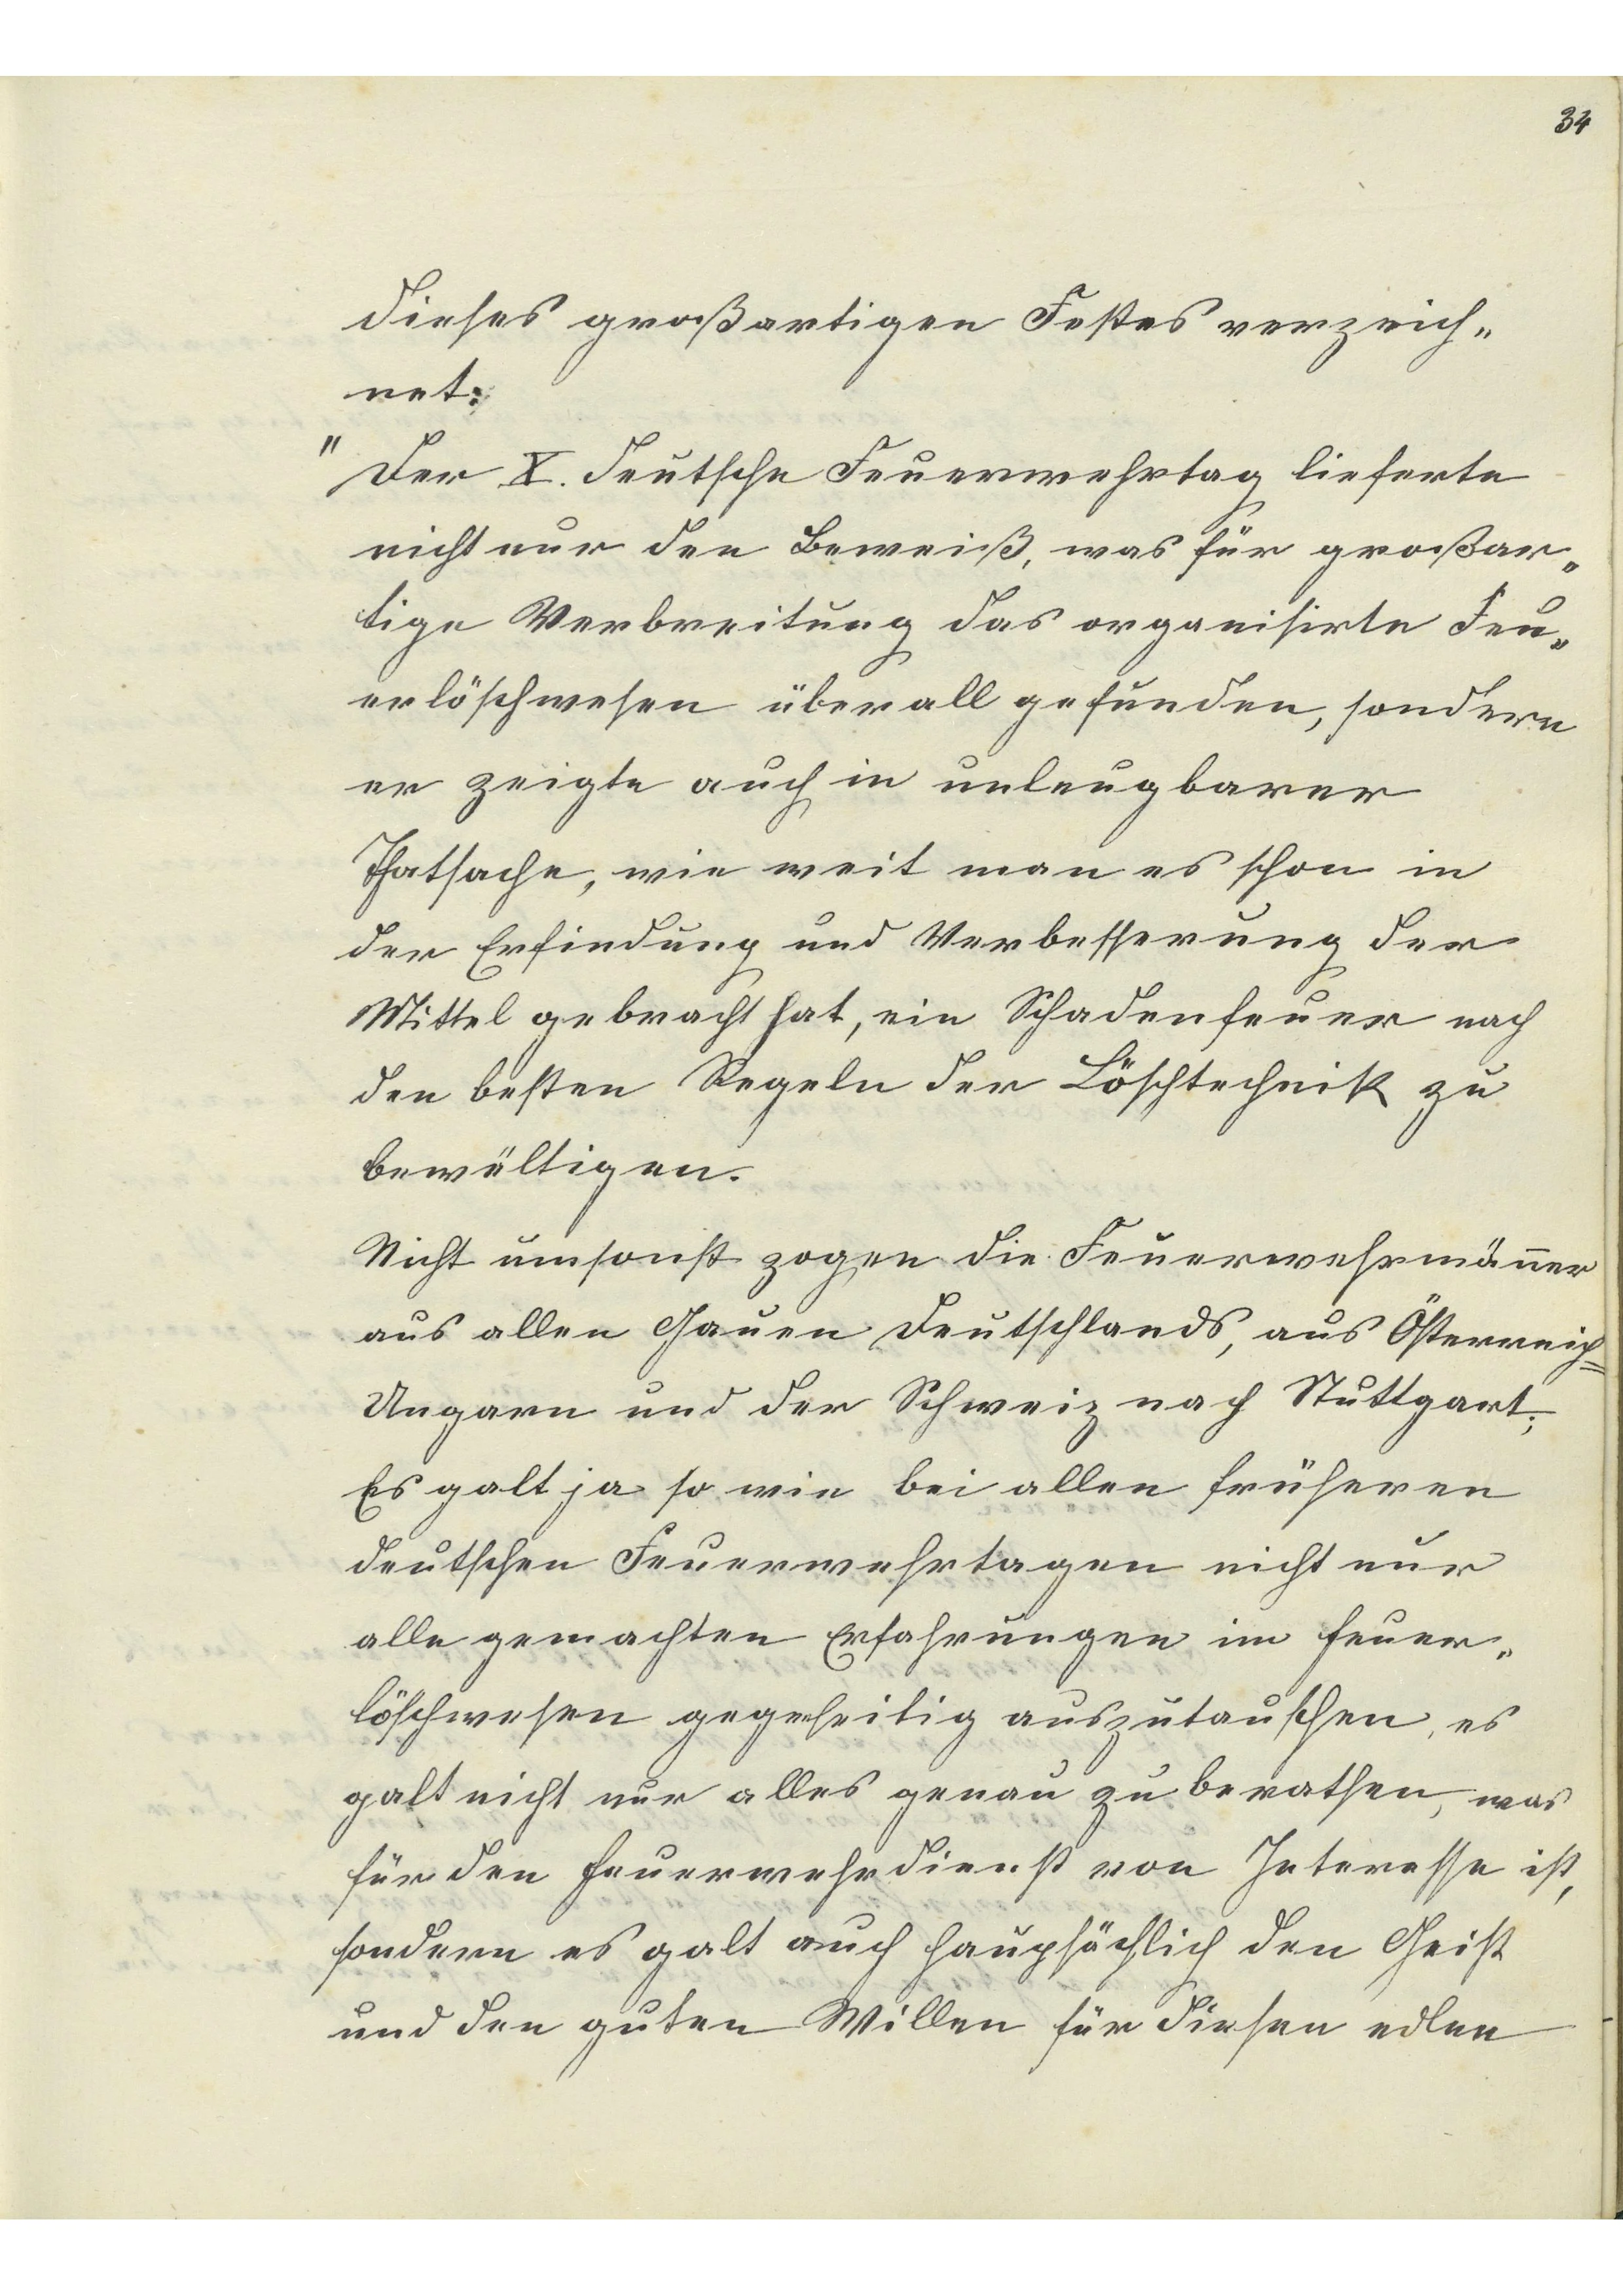 34
dieses großartigen Festes verzeich„
net:
"Der X. deutsche Feuerwehrtag lieferte
nicht nur den Beweiß, was für großar„
tige Verbreitung das organisirte Feu„
erlöschwesen überall gefunden, sondern
er zeigte auch in unleugbarer
Thatsache, wie weit man es schon in
der Erfindung und Verbesserung der
Mittel gebracht hat, ein Schadenfeuer nach
den besten Regeln der Löschtechnik zu
bewältigen.
Nicht umsonst zogen die Feuerwehrmäñer
aus allen Gauen Deutschlands, aus Österreich=
Ungarn und der Schweiz nach Stuttgart;
Es galt ja so wie bei allen früheren
deutschen Feuerwehrtagen nicht nur
alle gemachten Erfahrungen im Feuer„
löschwesen gegenseitig auszutauschen, es
galt nicht nur alles genau zu berathen, was
für den Feuerwehrdienst von Interesse ist,
sondern es galt auch haupsächlich den Geist
und den guten Willen für diesen edlen